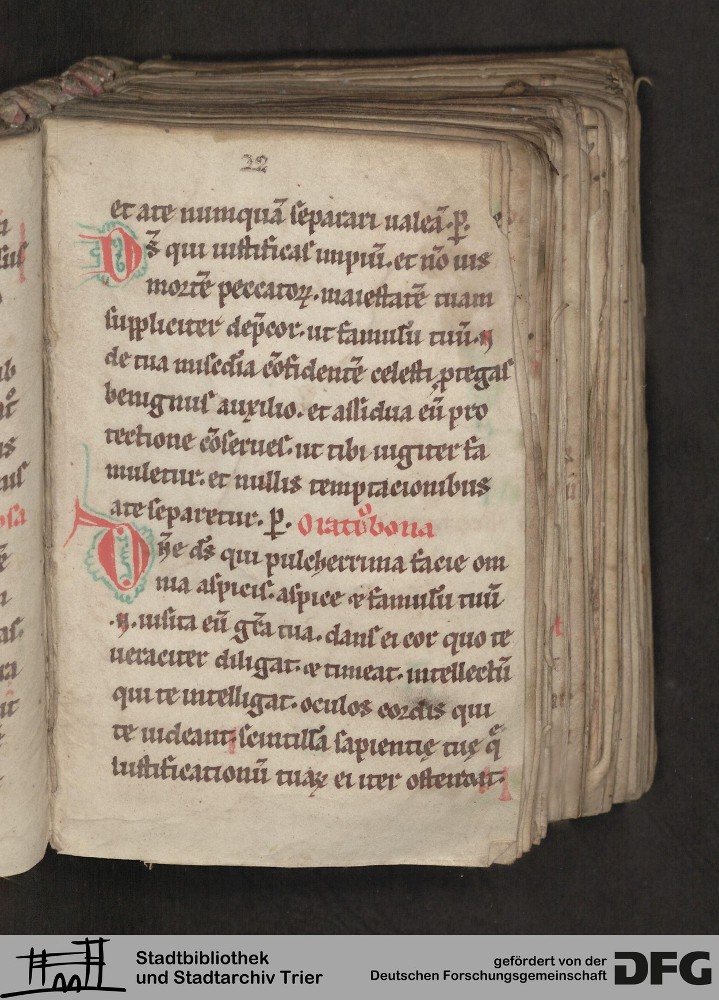 22
et ate numquā separari ualeā· ꝑ.
Ds̄ qui iustificas impiū. et nō uis
mortē peccatoꝝ. maiestatē tuam
suppliciter dep̄cor. ut famulū tuū .N
de tua misc̄dia cōfidentē celesti ꝓtegas
benignus auxilio. et assidua eū pro
tectione cōserues. ut tibi iugiter fa
muletur. et nullis temptacionibus
ate separetur. ꝑ. Oratᵒ bona
Dn̄e ds̄ qui pulcherrima facie om
nia aspicis. aspice & famulū tuū
.N. uisita eū gr̄a tua. dans ei cor quo te
ueraciter diligat. & timeat. intellectū
qui te intelligat. oculos cordis qui
te uideant scintillā sapientię tuę q̄
iustificationū tuaꝝ ei iter ostendat.
Stadtbibliothek
und Stadtarchiv Trier
gefördert von der
Deutschen Forschungsgemeinschaft
DFG